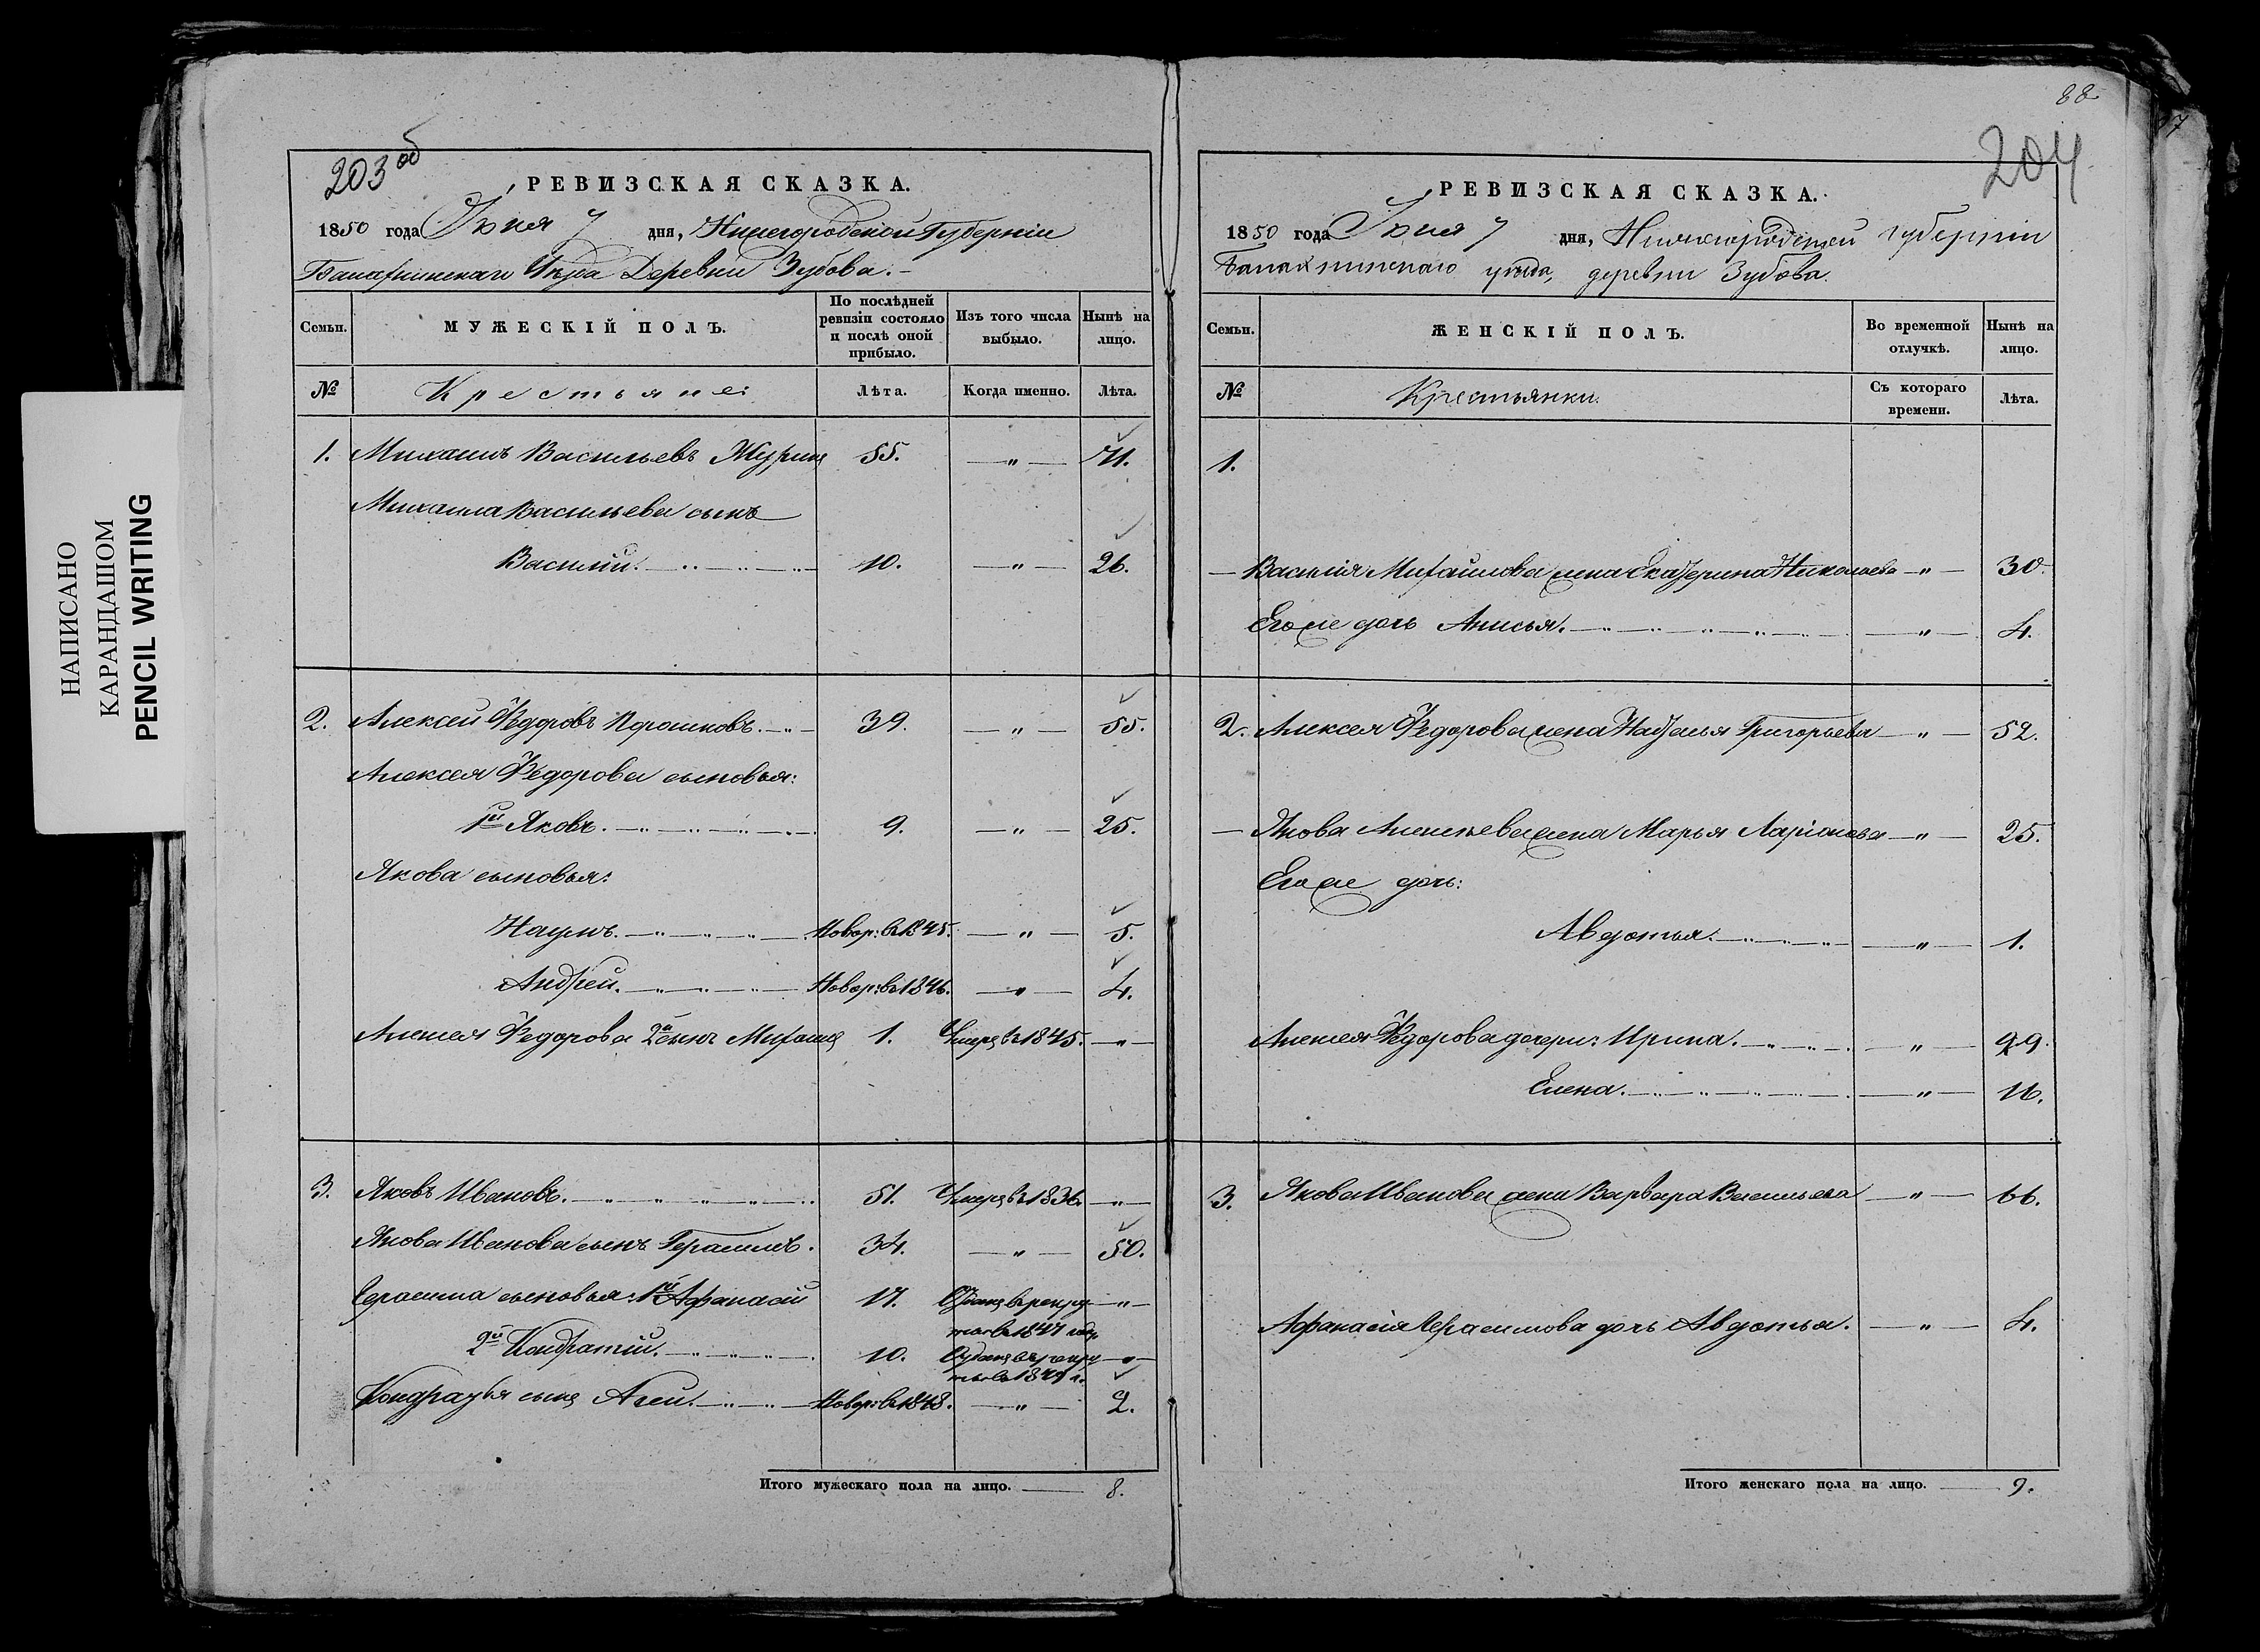 НАПИСАНО
КАРАНДАШОМ
PENCIL WRITING
203 об
РЕВИЗСКАЯ СКАЗКА.
1850 года Июня 7 дня, Нижегородской Губерніи
Балахнинскаго Уѣзда Деревни Зубова.
Семьи.
МУЖЕСКІЙ ПОЛЪ.
По послѣдней ревизіи состояло и послѣ оной прибыло.
Изъ того числа выбыло.
Нынѣ на лицо.
№ Крестьяне: Лѣта. Когда именно. Лѣта.
1. Михаилъ Васильевъ 55. — „ — 71.
Михаила Васильева сынъ
Василій. 10. — „ — 26.
2. Алексей Федоровъ 39. — „ — 55.
Алексея Федорова сыновья:
1й Яковъ. 9. — „ — 25.
Якова сыновья:
Наумъ. Новор: въ 1845. — „ — 5.
Андрей. Новор: въ 1846. — „ — 4.
Алексея Федорова 2й сынъ Михаилъ 1. Умеръ въ 1845. — „ —
3. Яковъ Ивановъ. 51. Умеръ въ 1836. — „ —
Якова Иванова сынъ Герасимъ. 34. — „ — 50.
Герасима сыновья: 1й Афанасій 17. Отданъ въ рекру — „ —
ты въ 1847 году
2й Кондратій. 10. Отданъ въ рекру — „ —
ты въ 1849 г.
Кондратья сынъ Новор: въ 1848. — „ — 2.
Итого мужескаго пола на лицо. — 8.
88
204
РЕВИЗСКАЯ СКАЗКА.
1850 года Июня 7 дня, Нижегородской губерніи
Балахнинскаго уѣзда, деревни Зубова.
Семьи.
ЖЕНСКІЙ ПОЛЪ.
Во временной отлучкѣ.
Нынѣ на лицо.
№ Крестьянки. Съ котораго времени. Лѣта.
1.
— Василія Михайлова жена Екатерина Николаева — „ — 30.
Его же дочь Анисья. — „ — 4.
2. Алексея Федорова жена Наталья Григорьева — „ — 52.
— Якова Алексѣева жена Марья Ларіонова — „ — 25.
Его же дочь:
Авдотья. — „ — 1.
Алексея Федорова дочери: Ирина. — „ — 29.
Елена. — „ — 16.
3. Якова Иванова жена Варвара Васильева — „ — 66.
Афанасія Герасимова дочь Авдотья. — „ — 4.
Итого женскаго пола на лицо. — 9.